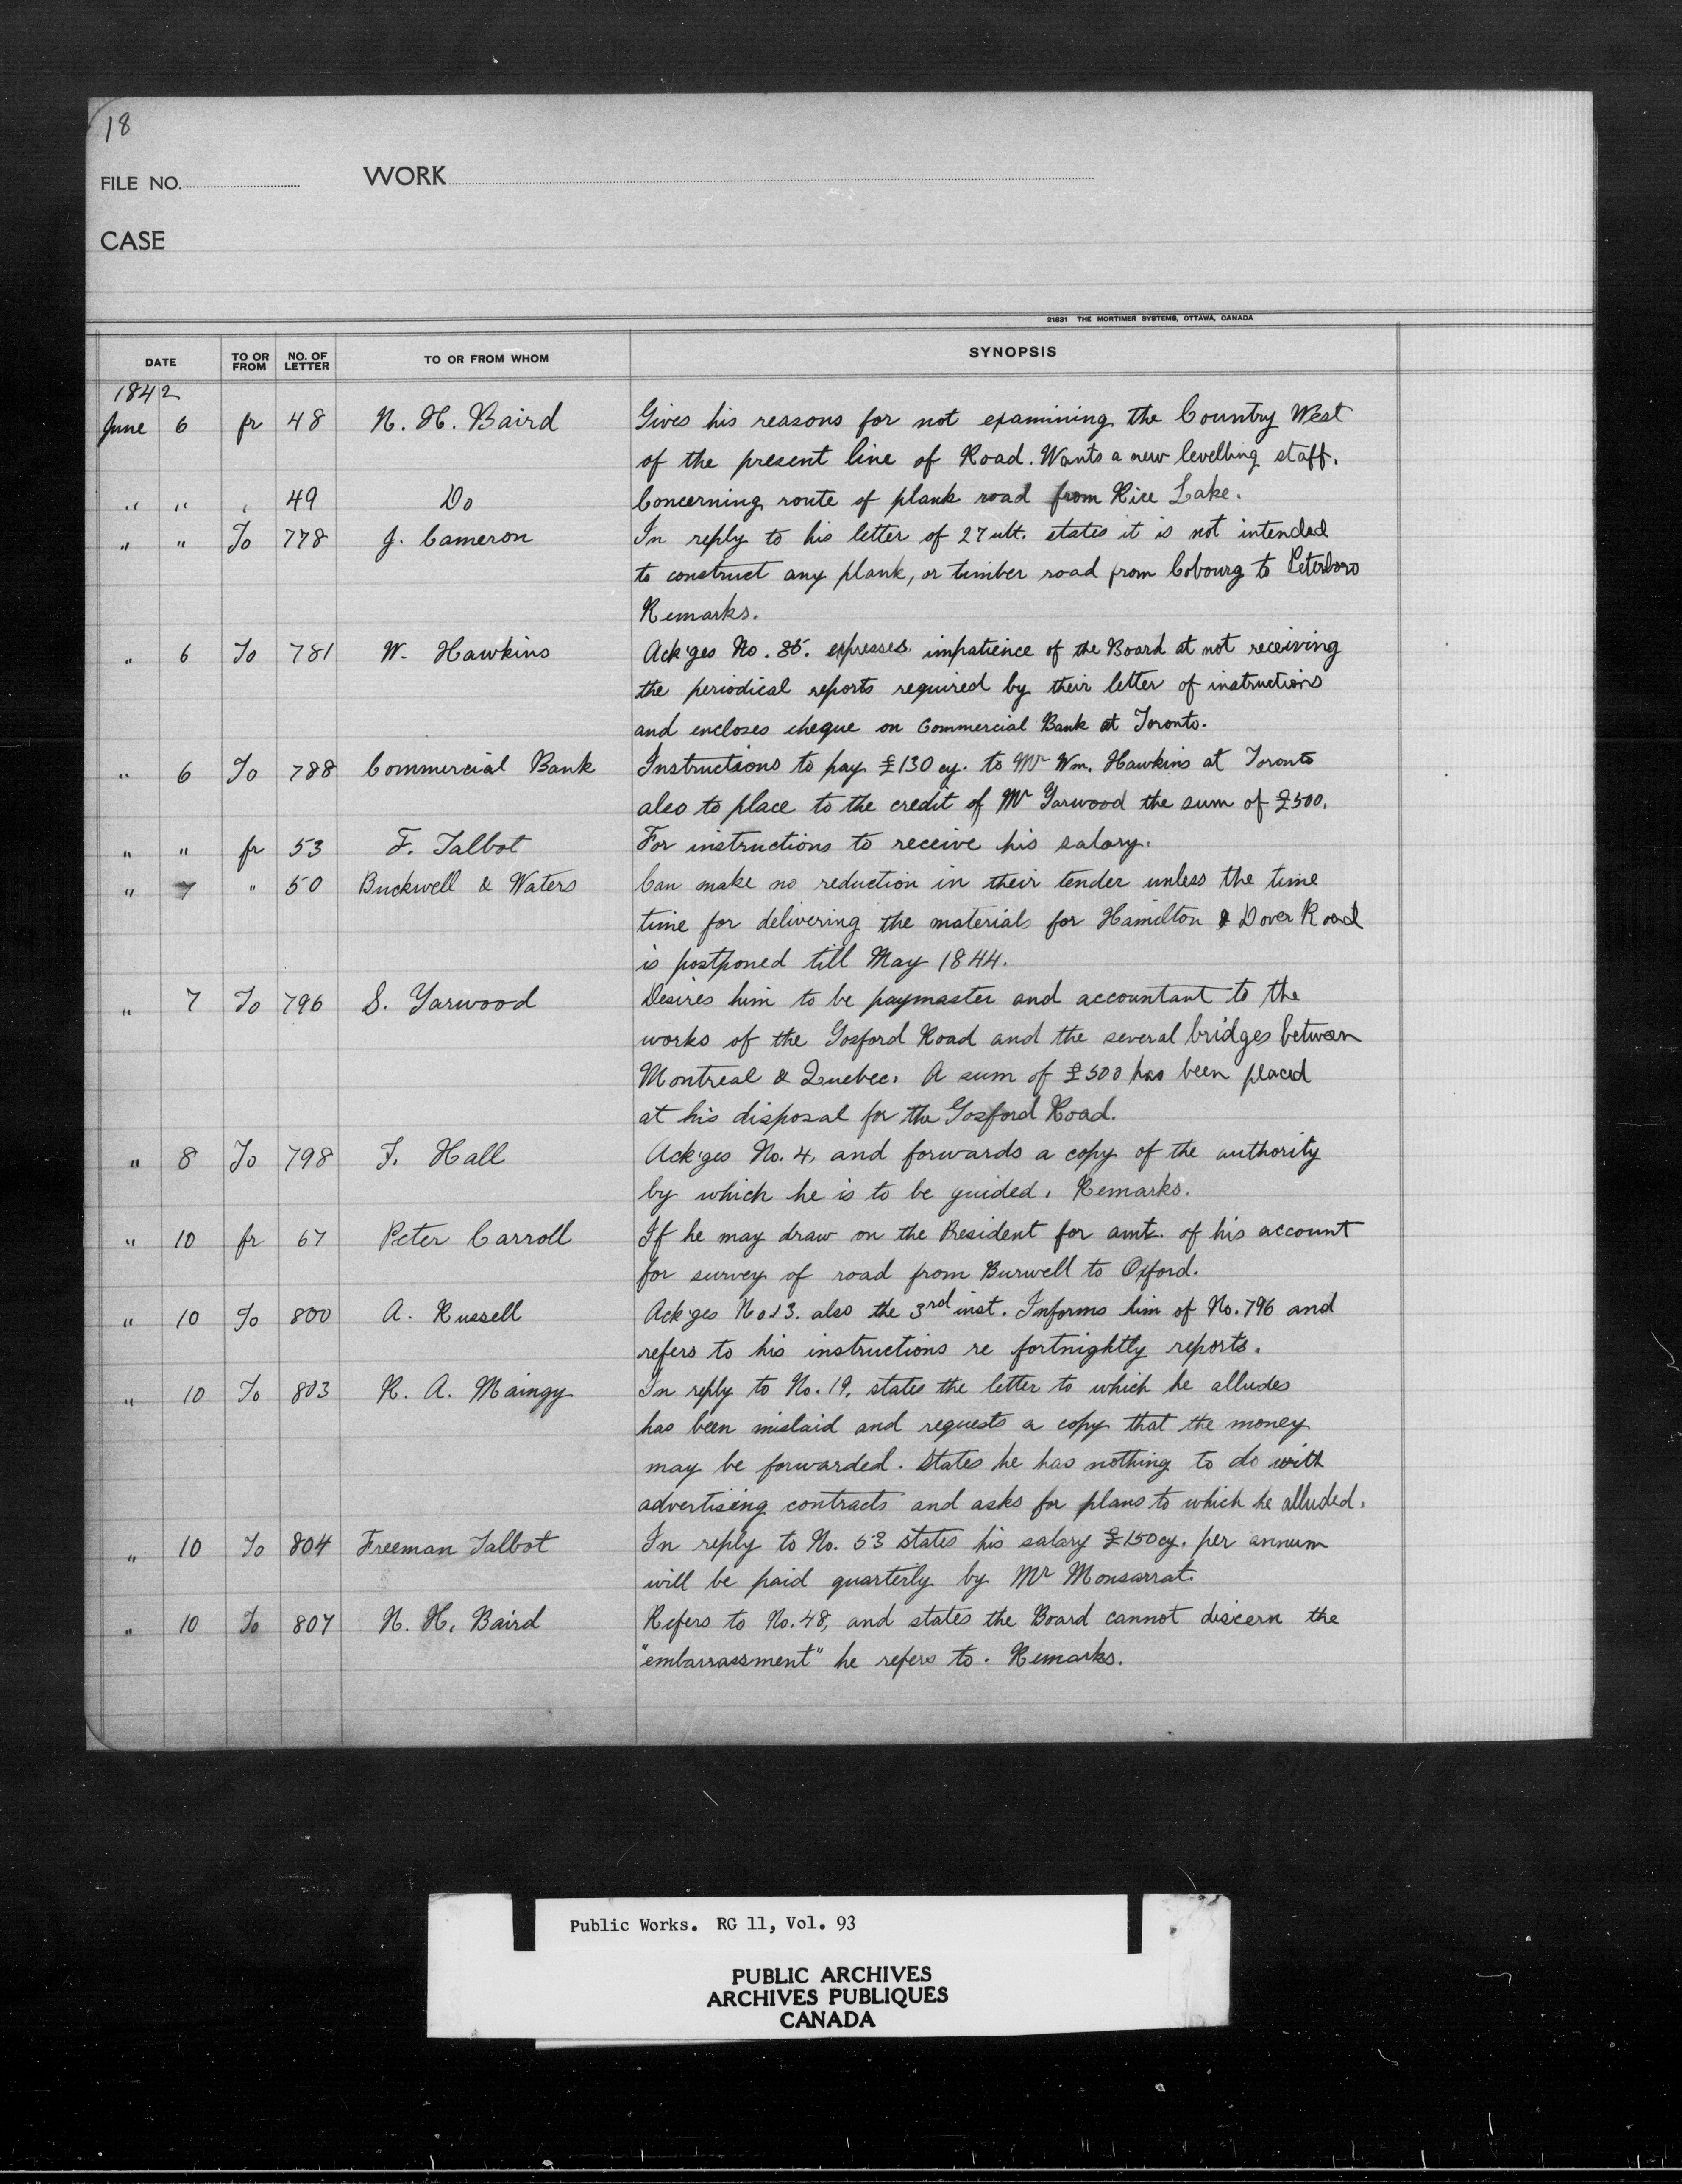 18
FILE NO. WORK
CASE
21831 THE MORTIMER SYSTEMS, OTTAWA, CANADA
DATE TO OR FROM NO. OF LETTER TO OR FROM WHOM SYNOPSIS
1842
June 6 fr 48 N. H. Baird Gives his reasons for not examining the Country West
of the present line of Road. Wants a new levelling staff.
" " " 49 Do Concerning route of plank road from Rice Lake.
" " To 778 J. Cameron In reply to his letter of 27 ult. states it is not intended
to construct any plank, or timber road from Cobourg to Peterboro
Remarks.
" 6 To 781 W. Hawkins Ack'ges No. 35. expresses impatience of the Board at not receiving
the periodical reports required by their letter of instructions
and encloses cheque on Commercial Bank at Toronto.
" 6 To 788 Commercial Bank Instructions to pay £130 cy. to Mr Wm. Hawkins at Toronto
also to place to the credit of Mr Yarwood the sum of £500.
" " fr 53 F. Talbot For instructions to receive his salary.
" 7 " 50 Buckwell & Waters Can make no reduction in their tender unless the time
time for delivering the materials for Hamilton & Dover Road
is postponed till May 1844.
" 7 To 796 S. Yarwood Desires him to be paymaster and accountant to the
works of the Gosford Road and the several bridges between
Montreal & Quebec. A sum of £500 has been placed
at his disposal for the Gosford Road.
" 8 To 798 F. Hall Ack'ges No. 4, and forwards a copy of the authority
by which he is to be guided. Remarks.
" 10 fr 67 Peter Carroll If he may draw on the President for amt. of his account
for survey of road from Burwell to Oxford.
" 10 To 800 A. Russell Ack'ges No 13. also the 3rd inst. Informs him of No. 796 and
refers to his instructions re fortnightly reports.
" 10 To 803 R. A. Maingy In reply to No. 19, states the letter to which he alludes
has been mislaid and requests a copy that the money
may be forwarded. States he has nothing to do with
advertising contracts and asks for plans to which he alluded.
" 10 To 804 Freeman Talbot In reply to No. 53 states his salary £150 cy. per annum
will be paid quarterly by Mr Monsarrat.
" 10 To 807 N. H. Baird Refers to No. 48, and states the Board cannot discern the
"embarrassment" he refers to. Remarks.
Public Works. RG 11, Vol. 93
PUBLIC ARCHIVES
ARCHIVES PUBLIQUES
CANADA